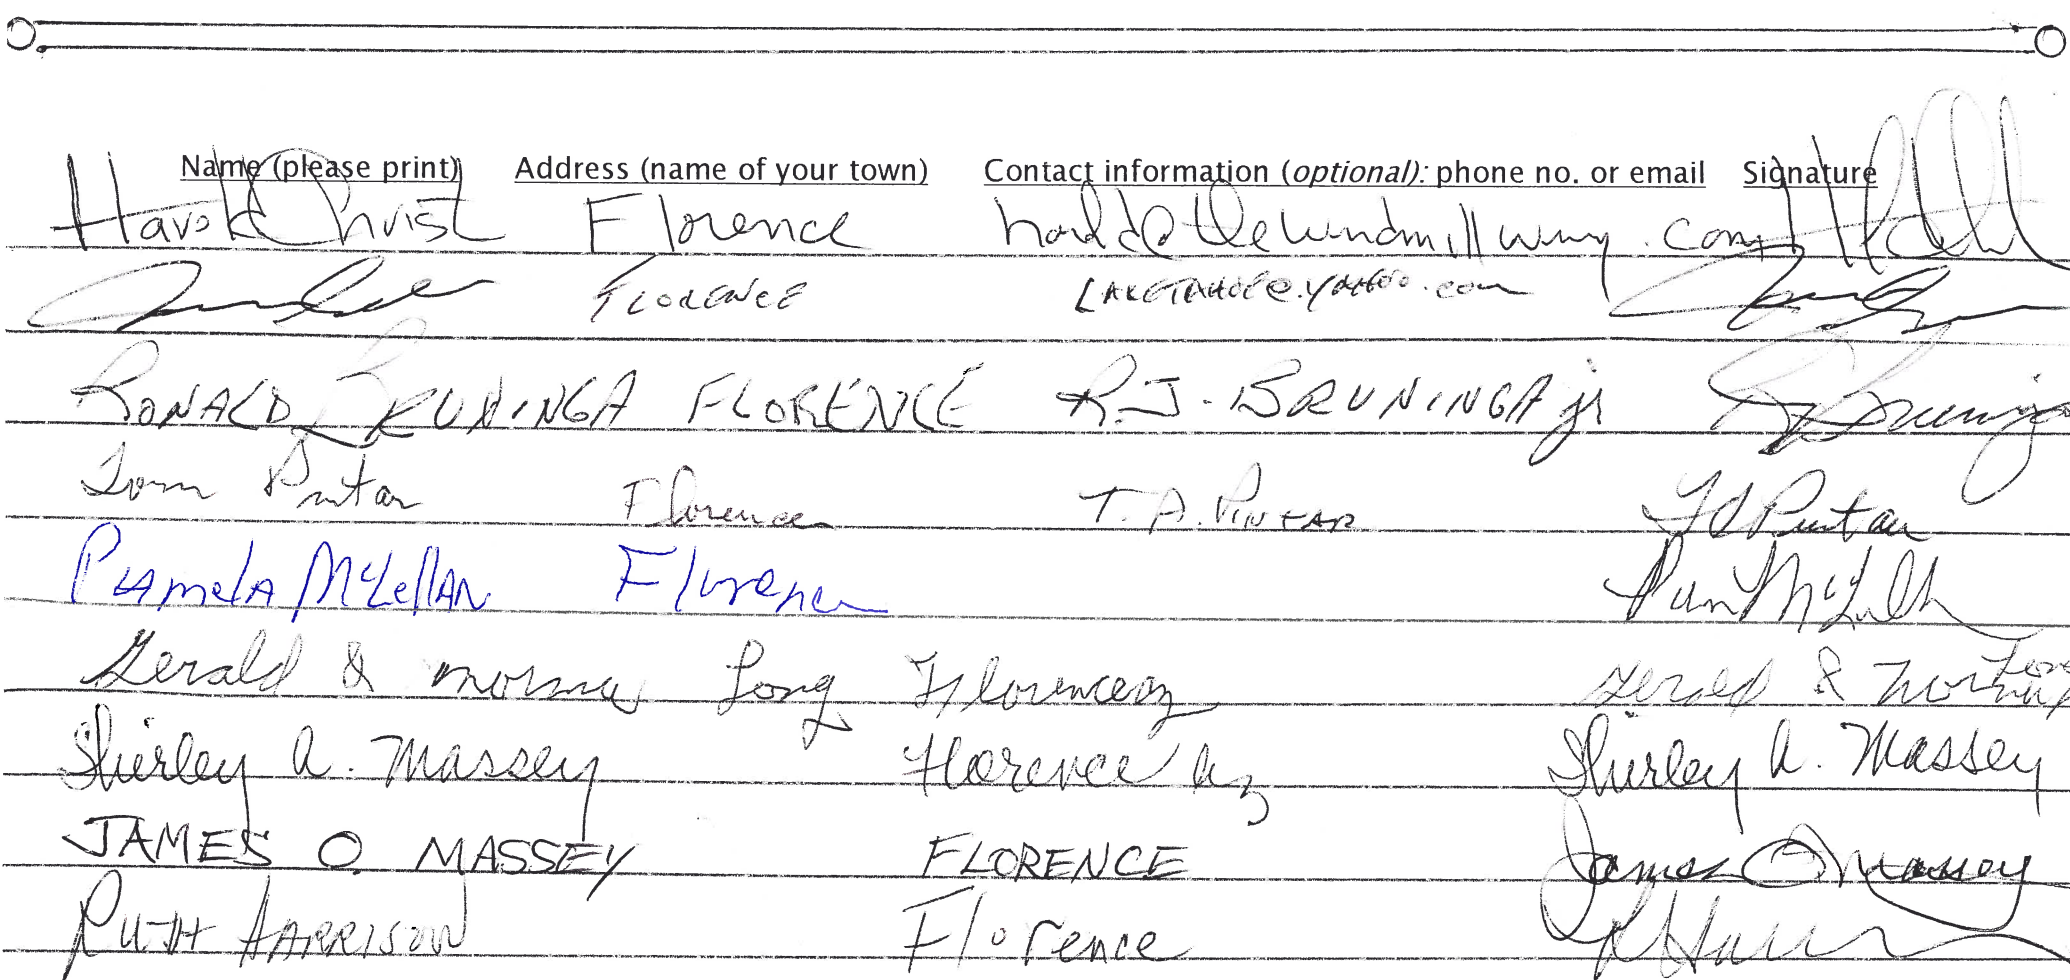 Name (please print) Address (name of your town) Contact information (optional): phone no. or email Signature
Harold Christ Florence
FLORENCE LAKETAHOE@.YAHOO.com
RONALD BRUNINGA FLORENCE R.J. BRUNINGA jr
Tom Pintar Florence T. A. PINTAR
PAmelA McLellAN Florence
Gerald & Norma Long Florence az Gerald & Norma Long
Shirley A. Massey Florence Az Shirley A. Massey
JAMES O. MASSEY FLORENCE James O Massey
RUTH HARRISON Florence